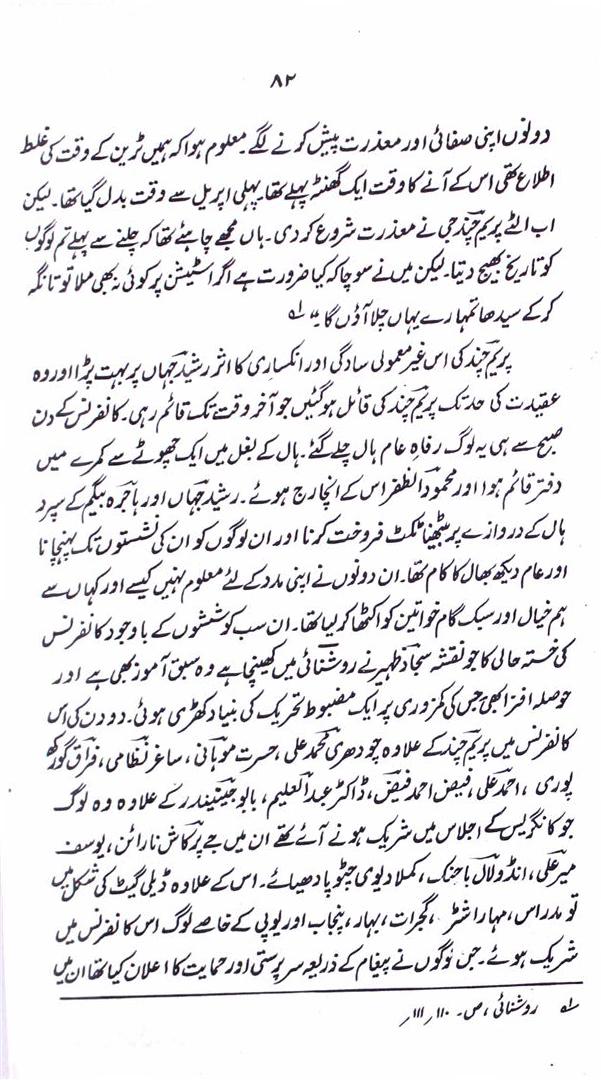 ۸۲
دونوں اپنی صفائی اور معذرت پیش کرنے لگے۔ معلوم ہوا کہ ہمیں ٹرین کے وقت کی غلط
اطلاع تھی اس کے آنے کا وقت ایک گھنٹہ پہلے تھا۔ پہلی اپریل سے وقت بدل گیا تھا۔ لیکن
اب الٹے پریم چند جی نے معذرت شروع کر دی۔ ہاں مجھے چاہئے تھا کہ چلنے سے پہلے تم لوگوں
کو تاریخ بھیج دیتا۔ لیکن میں نے سوچا کہ کیا ضرورت ہے اگر اسٹیشن پر کوئی نہ بھی ملا تو تانگہ
کر کے سیدھا تمہارے یہاں چلا آؤں گا۔" ؎۱
پریم چند کی اس غیر معمولی سادگی اور انکساری کا اثر رشید جہاں پر بہت پڑا اور وہ
عقیدت کی حد تک پریم چند کی قائل ہو گئیں جو آخر وقت تک قائم رہی۔ کانفرنس کے دن
صبح سے ہی یہ لوگ رفاہِ عام ہال چلے گئے۔ ہال کے بغل میں ایک چھوٹے سے کمرے میں
دفتر قائم ہوا اور محمود الظفر اس کے انچارج ہوئے۔ رشید جہاں اور ہاجرہ بیگم کے سپرد
ہال کے دروازے پر بیٹھنا ٹکٹ فروخت کرنا اور ان لوگوں کو ان کی نشستوں تک پہنچانا
اور عام دیکھ بھال کا کام تھا۔ ان دونوں نے اپنی مدد کے لئے معلوم نہیں کیسے اور کہاں سے
ہم خیال اور سبک گام خواتین کو اکٹھا کر لیا تھا۔ ان سب کوششوں کے باوجود کانفرنس
کی خستہ حالی کا جو نقشہ سجاد ظہیر نے روشنائی میں کھینچا ہے وہ سبق آموز بھی ہے اور
حوصلہ افزا بھی جس کی کمزوری پر ایک مضبوط تحریک کی بنیاد کھڑی ہوئی۔ دو دن کی اس
کانفرنس میں پریم چند کے علاوہ چودھری محمد علی، حسرت موہانی، ساغر نظامی، فراق گورکھ
پوری، احمد علی، فیض احمد فیض، ڈاکٹر عبد العلیم، بابو جینیندر کے علاوہ وہ لوگ
جو کانگریس کے اجلاس میں شریک ہونے آئے تھے ان میں جے پرکاش نارائن، یوسف
میر علی، انڈولال یاجنک، کملا دیوی چٹوپادھیائے۔ اس کے علاوہ ڈیلی گیٹ کی شکل میں
تو مدراس، مہاراشٹر، گجرات، بہار، پنجاب اور یوپی کے خاصے لوگ اس کانفرنس میں
شریک ہوئے۔ جن لوگوں نے پیغام کے ذریعہ سرپرستی اور حمایت کا اعلان کیا تھا ان میں
؎۱ روشنائی، ص۔ ۱۱۰، ۱۱۱